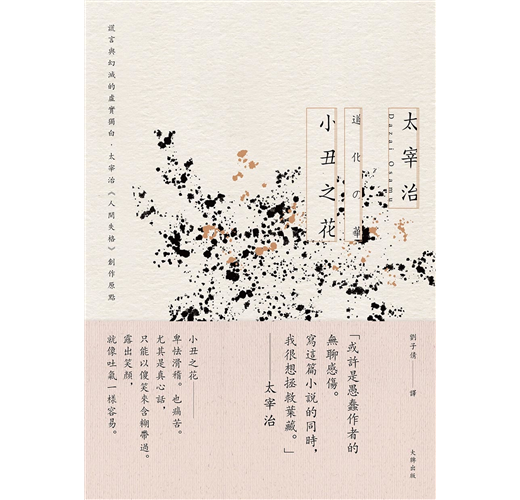 太宰治
Dazai Osamu
道化の華
小丑之花
謊言與幻滅的虛實獨白．太宰治《人間失格》創作原點
劉子倩——譯
大牌出版
「或許是愚蠢作者的
無聊感傷。
寫這篇小說的同時，
我很想拯救葉藏。」
——太宰治
小丑之花——
卑怯滑稽。也痛苦。
尤其是真心話，
只能以傻笑來含糊帶過。
露出笑顏，
就像吐氣一樣容易。